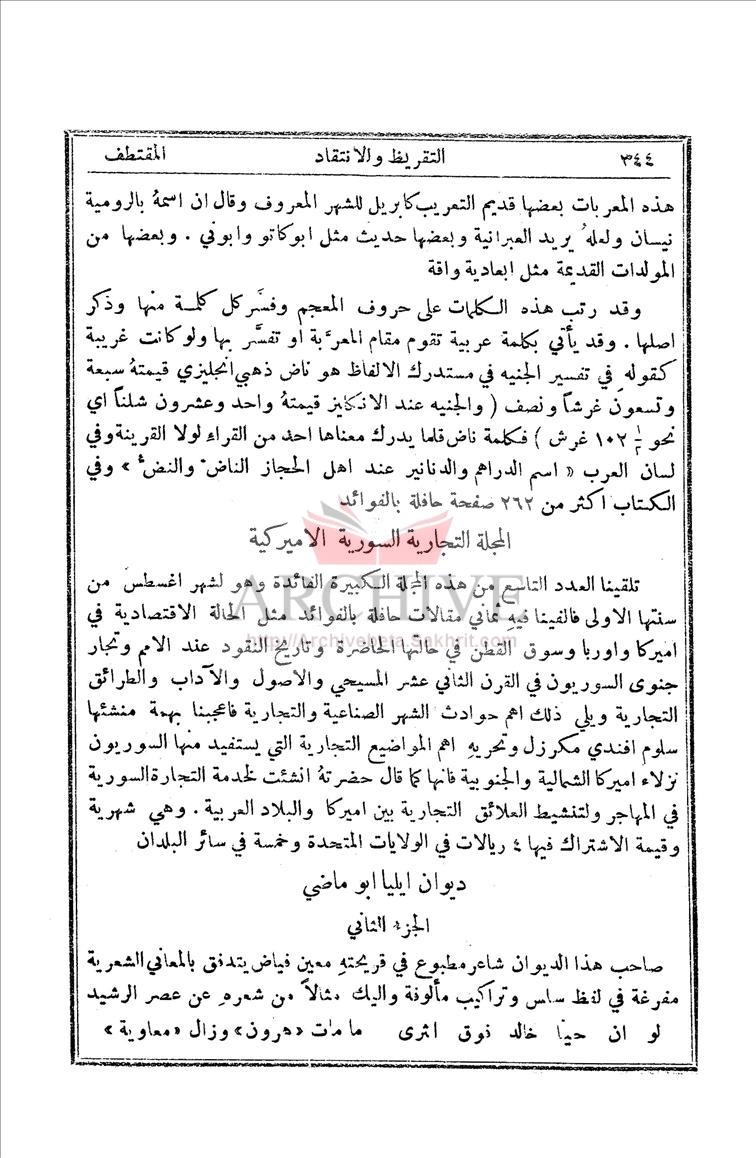 ٣٤٤
التقريظ والانتقاد
المقتطف
هذه المعربات بعضها قديم التعريب كابريل للشهر المعروف وقال ان اسمهُ بالرومية
نيسان ولعلهُ يريد العبرانية وبعضها حديث مثل ابوكاتو وابوفي . وبعضها من
المولدات القديمة مثل ابعادية واقة
وقد رتب هذه الكلمات على حروف المعجم وفسَّر كل كلمة منها وذكر
اصلها . وقد يأتي بكلمة عربية تقوم مقام المعرَّبة او تفسَّر بها ولو كانت غريبة
كقولهِ في تفسير الجنيه في مستدرك الالفاظ هو ناض ذهبي انجليزي قيمتهُ سبعة
وتسعون غرشاً ونصف ( والجنيه عند الانكليز قيمتهُ واحد وعشرون شلناً اي
نحو ١٠٢ ١/٢ غرش ) فكلمة ناض قلما يدرك معناها احد من القراء لولا القرينة وفي
لسان العرب « اسم الدراهم والدنانير عند اهل الحجاز الناضّ والنضّ » وفي
الكتاب اكثر من ٢٦٢ صفحة حافلة بالفوائد
المجلة التجارية السورية الاميركية
تلقينا العدد التاسع من هذه المجلة الكبيرة الفائدة وهو لشهر اغسطس من
سنتها الاولى فالفينا فيه ثماني مقالات حافلة بالفوائد مثل الحالة الاقتصادية في
اميركا واوربا وسوق القطن في حالتها الحاضرة وتاريخ النقود عند الامم وتجار
جنوى السوريون في القرن الثاني عشر المسيحي والاصول والآداب والطرائق
التجارية ويلي ذلك اهم حوادث الشهر الصناعية والتجارية فاعجبنا بهمة منشئها
سلوم افندي مكرزل وتحريهِ اهم المواضيع التجارية التي يستفيد منها السوريون
نزلاء اميركا الشمالية والجنوبية فانها كما قال حضرتهُ انشئت لخدمة التجارة السورية
في المهاجر ولتنشيط العلائق التجارية بين اميركا والبلاد العربية . وهي شهرية
وقيمة الاشتراك فيها ٤ ريالات في الولايات المتحدة وخمسة في سائر البلدان
ديوان ايليا ابو ماضي
الجزء الثاني
صاحب هذا الديوان شاعر مطبوع في قريحتهِ معين فياض يتدفق بالمعاني الشعرية
مفرغة في لفظ سلس وتراكيب مألوفة واليك مثالاً من شعره عن عصر الرشيد
لو ان حيّاً خالد فوق الثرى ما مات «هرون» وزال «معاوية»
ARCHIVE
http://Archivebeta.Sakhrit.com